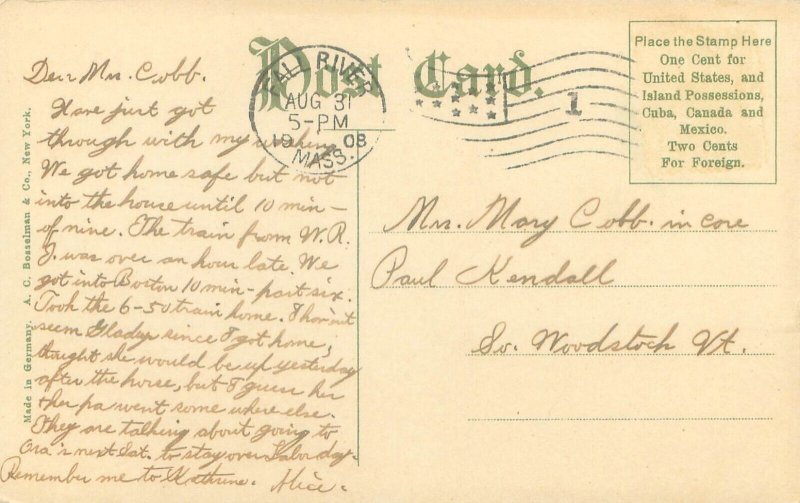 Post Card.
Place the Stamp Here
One Cent for
United States, and
Island Possessions,
Cuba, Canada and
Mexico.
Two Cents
For Foreign.
FALL RIVER
AUG 31
5-PM
1908
MASS.
1
Made in Germany. A. C. Bosselman & Co., New York.
Dear Mrs. Cobb.
Have just got
through with my washing.
We got home safe but not
into the house until 10 min-
of nine. The train from W. R.
J. was over an hour late. We
got into Boston 10 min-past six.
Took the 6-50 train home. I hav'nt
seem Gladys since I got home,
thought she would be up yesterday
after the horse, but I guess her
& her pa went some where else.
They are talking about going to
Ora's next Sat. to stay over Labor day.
Remember me to Kathrine. Alice.
Mrs. Mary Cobb. in care
Paul Kendall
So. Woodstock Vt.